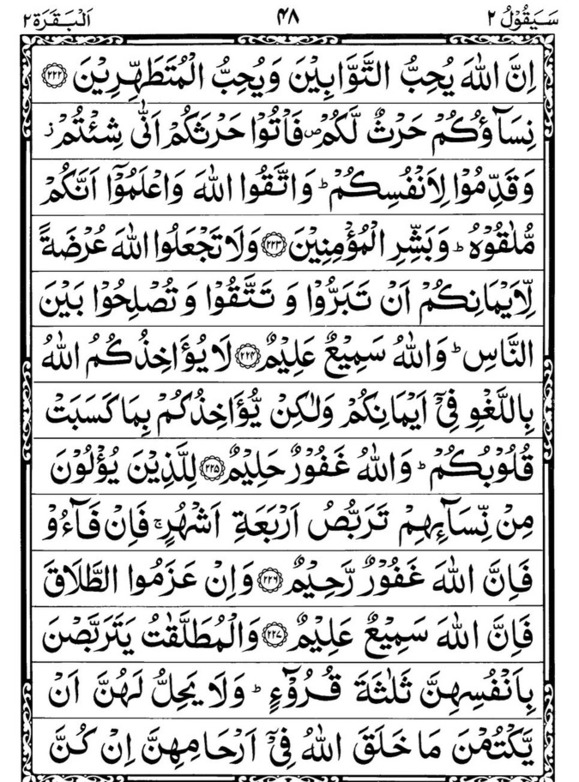 سَيَقُوۡلُ ٢ ٤٨ اَلۡبَقَرَة ٢
اِنَّ اللّٰهَ يُحِبُّ التَّوَّابِيۡنَ وَيُحِبُّ الۡمُتَطَهِّرِيۡنَ ﴿٢٢٢﴾
نِسَآؤُكُمۡ حَرۡثٌ لَّكُمۡ ۖ فَاۡتُوۡا حَرۡثَكُمۡ اَنّٰى شِئۡتُمۡ ز
وَقَدِّمُوۡا لِاَنۡفُسِكُمۡ ؕ وَاتَّقُوا اللّٰهَ وَاعۡلَمُوۡٓا اَنَّكُمۡ
مُّلٰقُوۡهُ ؕ وَبَشِّرِ الۡمُؤۡمِنِيۡنَ ﴿٢٢٣﴾ وَلَا تَجۡعَلُوا اللّٰهَ عُرۡضَةً
لِّاَيۡمَانِكُمۡ اَنۡ تَبَرُّوۡا وَ تَتَّقُوۡا وَ تُصۡلِحُوۡا بَيۡنَ
النَّاسِ ؕ وَاللّٰهُ سَمِيۡعٌ عَلِيۡمٌ ﴿٢٢٤﴾ لَا يُؤَاخِذُكُمُ اللّٰهُ
بِاللَّغۡوِ فِىۡٓ اَيۡمَانِكُمۡ وَلٰكِنۡ يُّؤَاخِذُكُمۡ بِمَا كَسَبَتۡ
قُلُوۡبُكُمۡ ؕ وَاللّٰهُ غَفُوۡرٌ حَلِيۡمٌ ﴿٢٢٥﴾ لِلَّذِيۡنَ يُؤۡلُوۡنَ
مِنۡ نِّسَآئِهِمۡ تَرَبُّصُ اَرۡبَعَةِ اَشۡهُرٍ ۚ فَاِنۡ فَآءُوۡ
فَاِنَّ اللّٰهَ غَفُوۡرٌ رَّحِيۡمٌ ﴿٢٢٦﴾ وَاِنۡ عَزَمُوا الطَّلَاقَ
فَاِنَّ اللّٰهَ سَمِيۡعٌ عَلِيۡمٌ ﴿٢٢٧﴾ وَالۡمُطَلَّقٰتُ يَتَرَبَّصۡنَ
بِاَنۡفُسِهِنَّ ثَلٰثَةَ قُرُوۡٓءٍ ؕ وَلَا يَحِلُّ لَهُنَّ اَنۡ
يَّكۡتُمۡنَ مَا خَلَقَ اللّٰهُ فِىۡٓ اَرۡحَامِهِنَّ اِنۡ كُنَّ